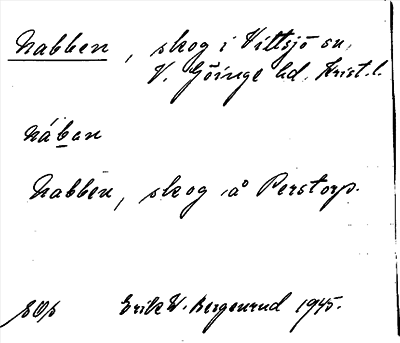 Nabben, skog i Vittsjö sn,
V. Göinge hd, Krist.l.
nában
Nabben, skog å Perstorp.
Erik W. Bergenrud 1945.